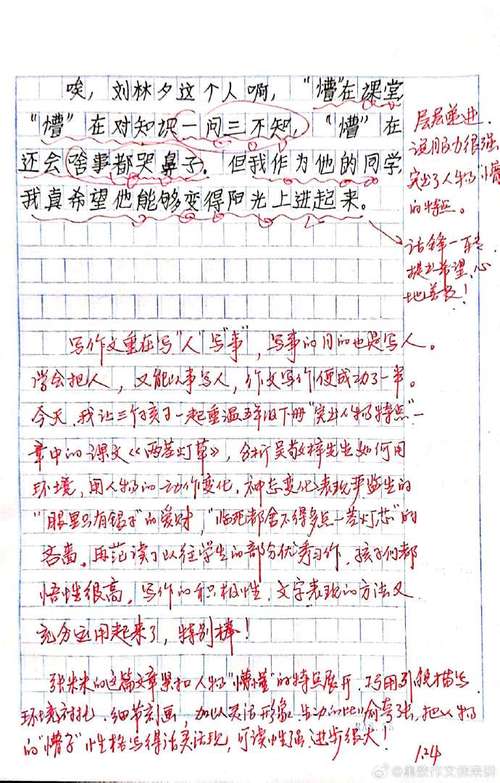 唉，刘林夕这个人啊，“懵”在课堂
“懵”在对知识一问三不知，“懵”在
还会啥事都哭鼻子。但我作为他的同学
我真希望他能够变得阳光上进起来。
层层递进，
说服力很强，
突出了人物“懵”
的特点。
话锋一转，
提出希望，心
地善良！
写作文重在写“人”写“事”，写事的目的也是写人。
学会把人，又能以事写人，作文写作便成功了一半。
今天，我让三个孩子一起重温五年级下册“突出人物特点”一
章中的课文《两茎灯草》，分析吴敬梓先生如何用
环境，用人物的动作变化，神态变化表现严监生的
“眼里只有银子”的爱财，“临死都舍不得多点一茎灯芯”的
吝啬。再范读了以往学生的部分优秀习作，孩子们都
悟性很高，写作的积极性，文字表现的方法又
充分运用起来了，特别棒！
张米米的这篇文章紧扣人物“懵懂”的特点展开，巧用外貌描写
环境衬托，细节刻画，加以灵活形象、生动的比喻夸张，把人物
的“懵子”性格写得活灵活现，可读性强，进步很大！
124